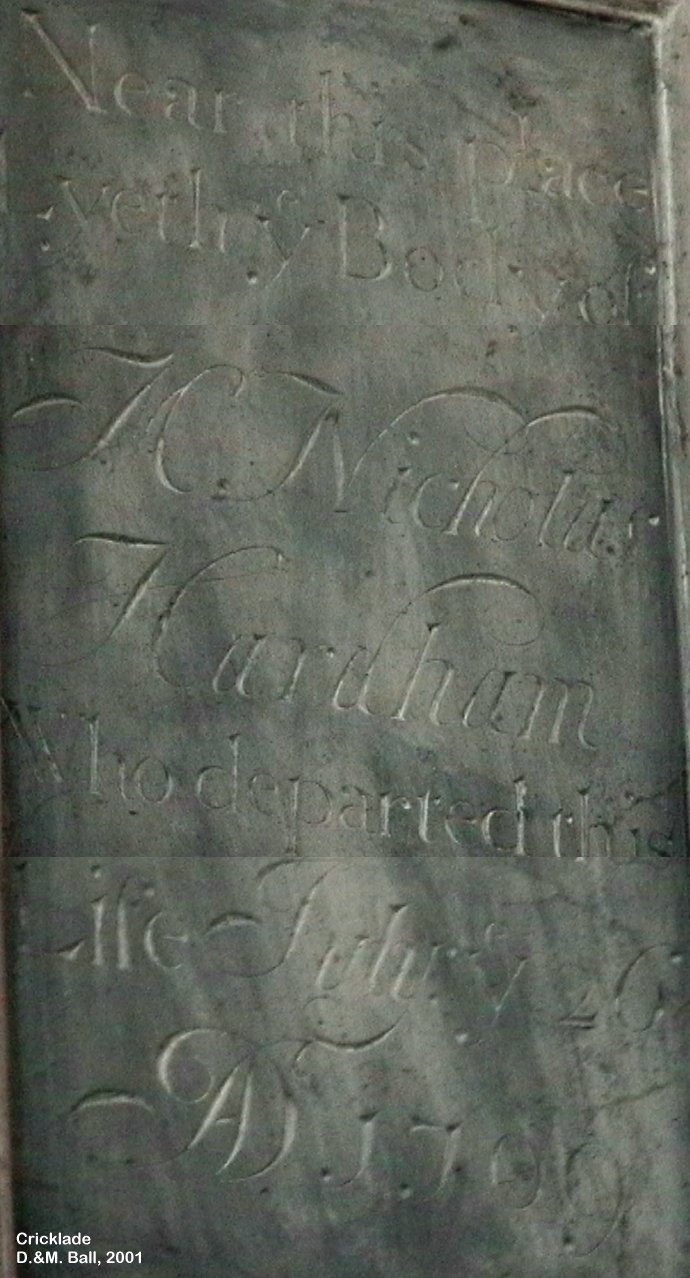 Near this place
Lyeth yͤ Body of
H Nicholus
Hardham
Who departed this
Life July yͤ 26
AD 1709
Cricklade
D.&M. Ball, 2001